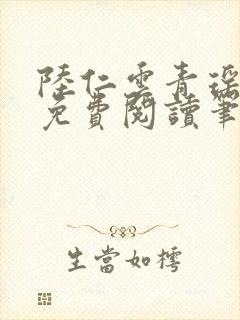 陸仁雲青瑤
免費閱讀筆
生當如樗